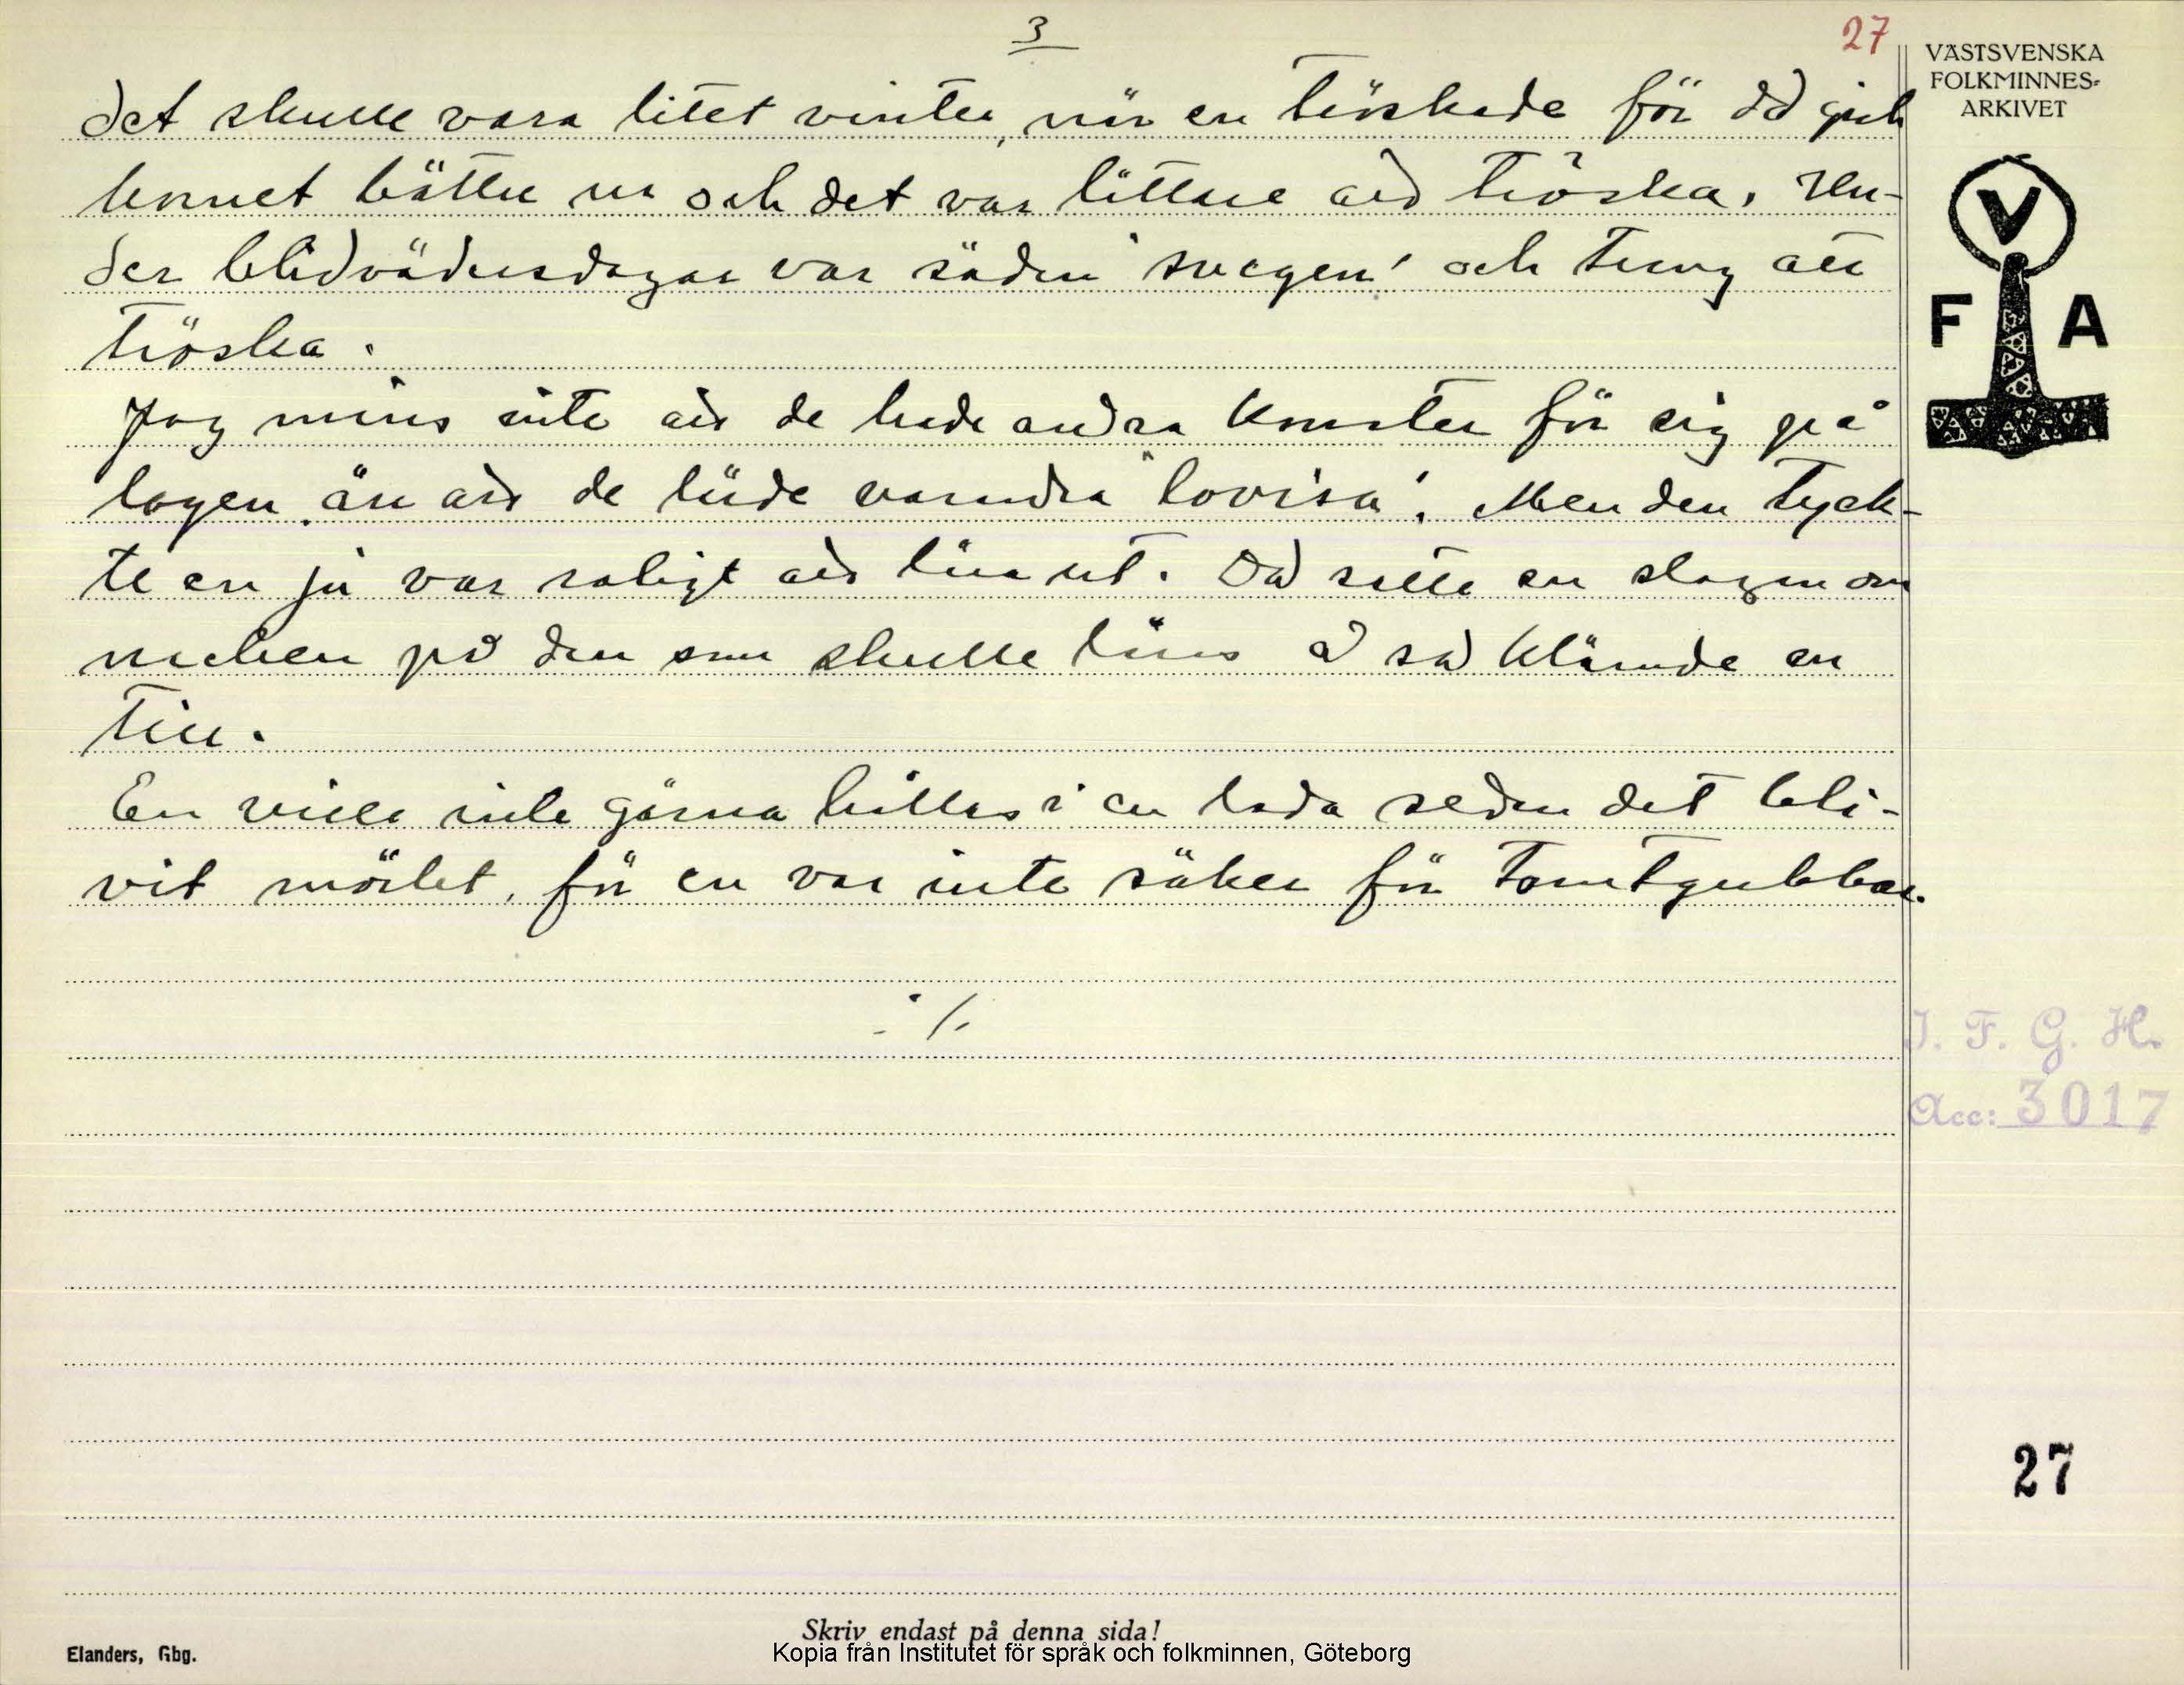 3
27
VÄSTSVENSKA
FOLKMINNES-
ARKIVET
V
F A
det skulle vara litet vinter, när en tröskade för då gick
kornet bättre ur och det var lättare att tröska. Un-
der blidvädersdagar var säden "svegen" och tung att
tröska.
Jag mins inte att de hade andra konster för sig på
logen än att de lärde varandra "lovisa". Men den tyck-
te en ju var roligt att lära ut. Då satte en slagan om
nacken på den som skulle läras å så klämde en
till.
En ville inte gärna hållas i en lada sedan det bli-
vit mörket, för en var inte säker för Tomtgubbar.
./.
I. F. G. H.
Acc: 3017
27
Skriv endast på denna sida!
Kopia från Institutet för språk och folkminnen, Göteborg
Elanders, Gbg.